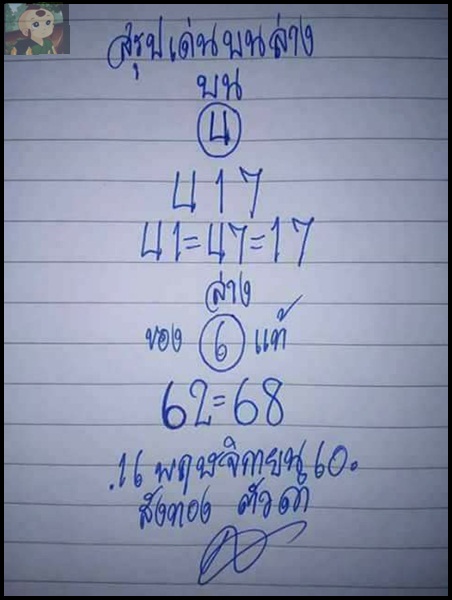 สรุปเด่นบนล่าง
บน
4
417
41=47=17
ล่าง
ของ 6 แท้
62=68
.16 พฤษจิกายน 60.
สังทอง ตัวดำ